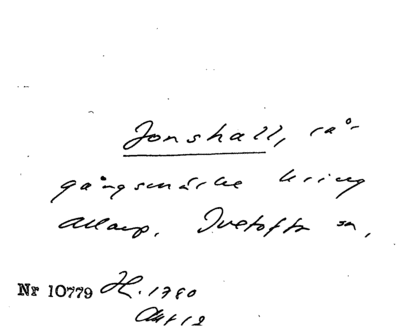 Jonshall, rå-
gångsmärke kring
Allarp. Tvetofta sn,
Nr 10779 H. 1780
Akt 12